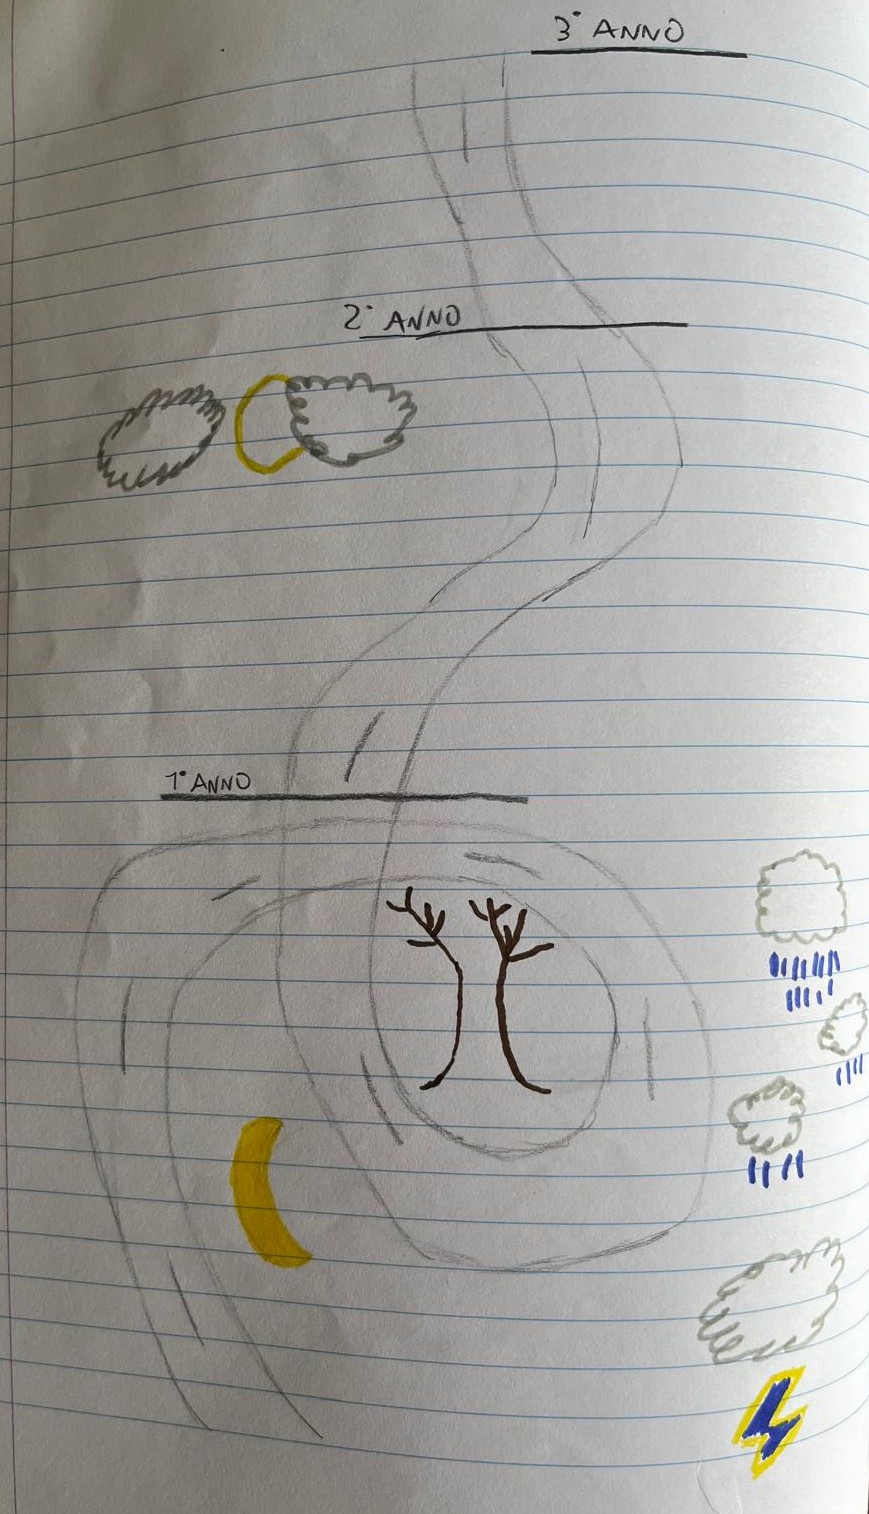 3° ANNO
2° ANNO
1° ANNO